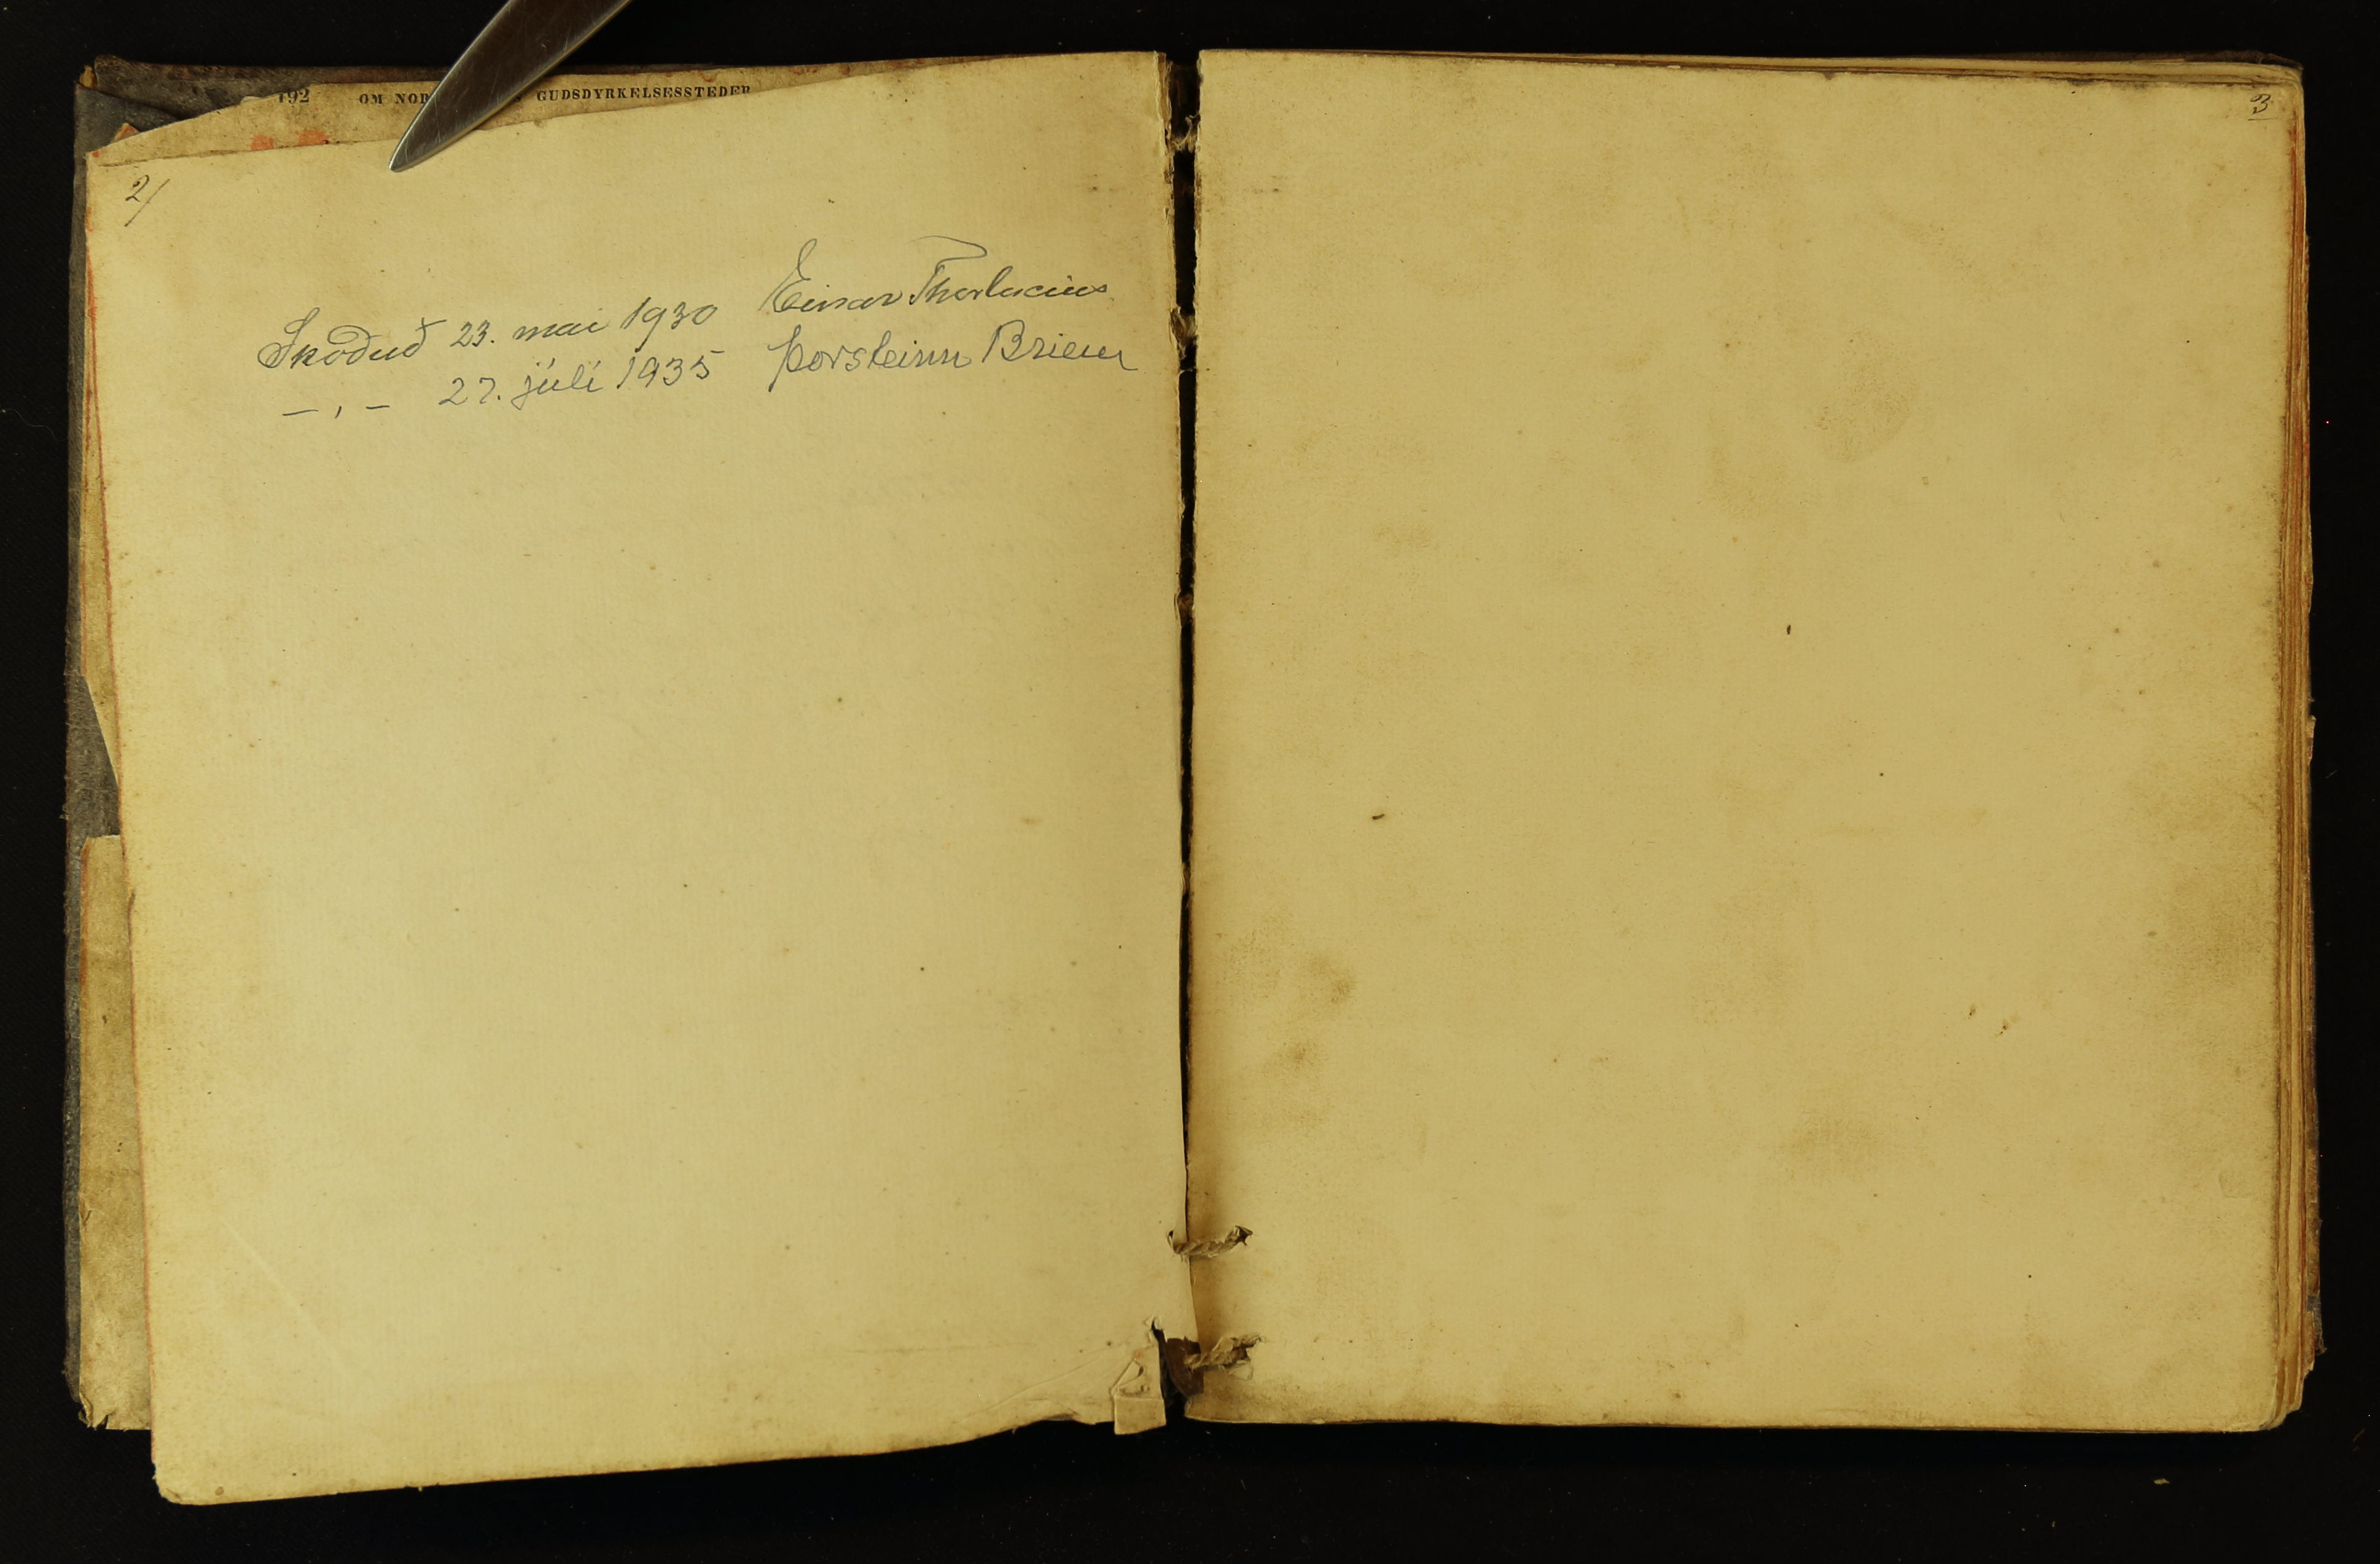 192 OM NOR GUDSDYRKELSESSTEDER
2/
Skoðuð 23. mai 1930 Einar Thorlacius
— , — 27. júlí 1935 Þorsteinn Briem
3